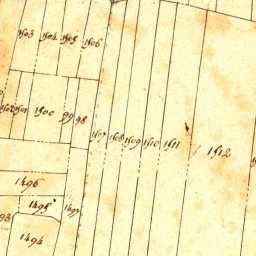 1503 1504 1505 1506
1501 1500 99 98
1507 1508 1509 1510 1511 1512
1496
1495 1497
93
1494